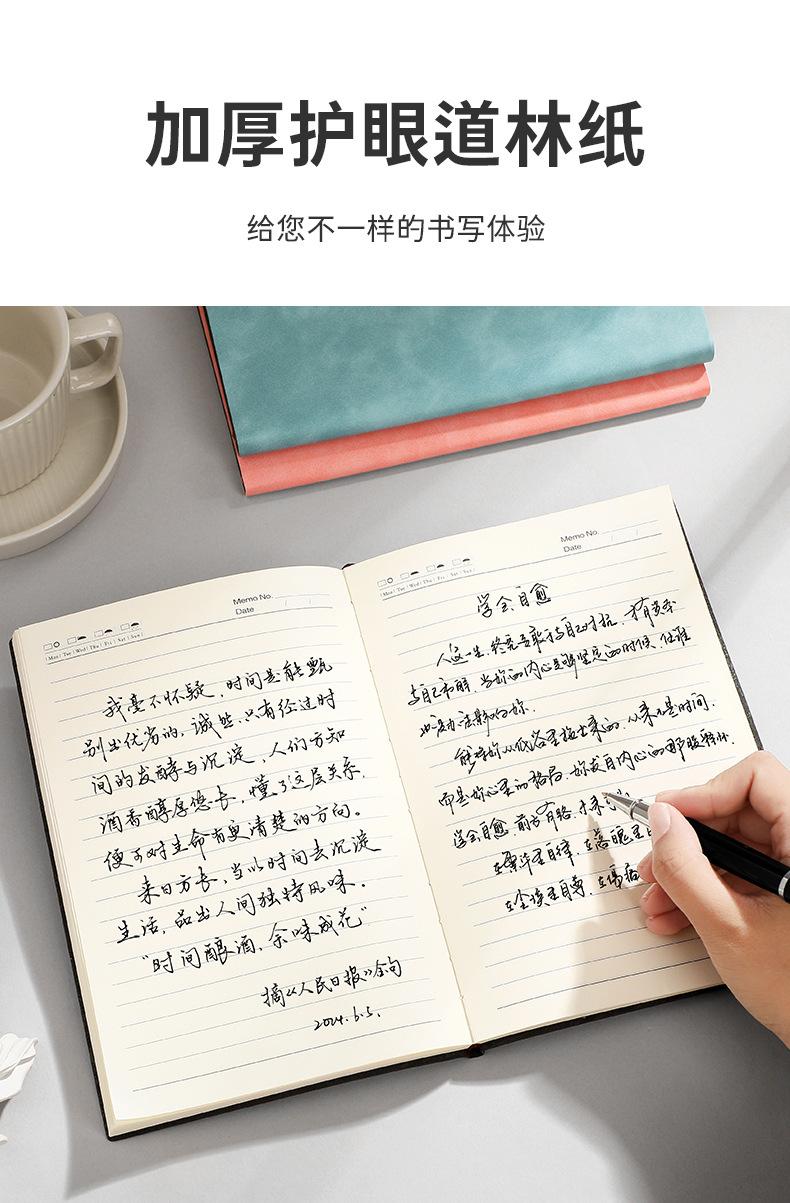 加厚护眼道林纸
给您不一样的书写体验
Memo No.
Date / /
Mon Tue Wed Thu Fri Sat Sun
我毫不怀疑，时间是能甄
别出优劣的，诚然，只有经过时
间的发酵与沉淀，人们方知
酒香醇厚悠长，懂了这层关系，
便可对生命有更清楚的方向。
来日方长，当以时间去沉淀
生活，品出人间独特风味。
“时间酿酒，余味成花”
摘《人民日报》金句
2024.6.5.
Memo No.
Date / /
Mon Tue Wed Thu Fri Sat Sun
学会自愈
人这一生，终究是敢于与自己对抗，
与自己和解，当你的内心足够坚定的时候，任谁
也没办法影响你。
能将你从低谷里拉出来的，从来不是时间，
而是你心里的格局，
学会自愈，前方有路，